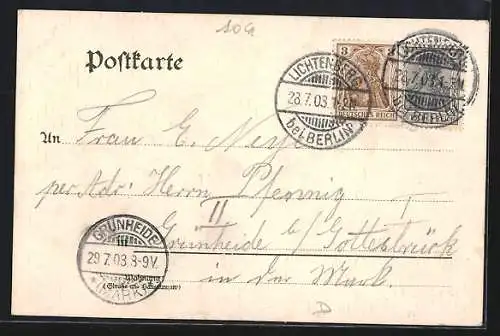 10G
Postkarte
LICHTENBERG
28.7.03. 1-2N.
bei BERLIN
3
DEUTSCHES REICH
LICHTENBERG
28.7.03.
bei BERLIN
An Frau E.
per Adr: Herrn Pfennig
II
Grünheide b/ Gottesbrück
in der Mark.
GRÜNHEIDE
29.7.03. 8-9V.
(MARK)
Wohnung
(Straße und Hausnummer)
D